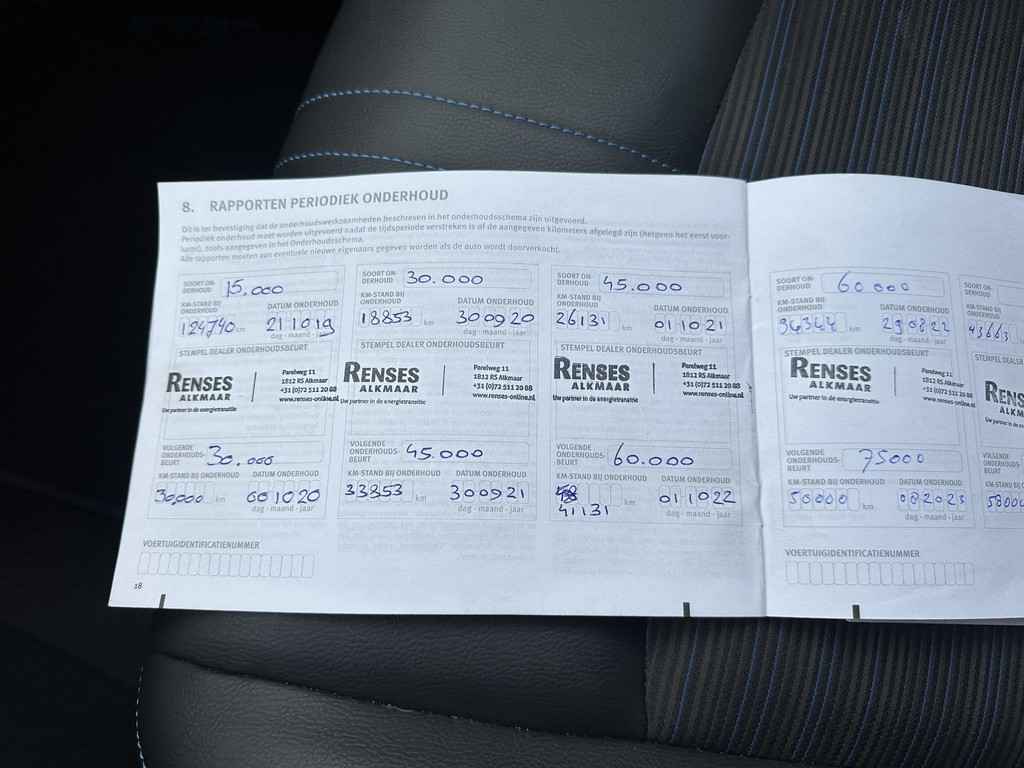 8. RAPPORTEN PERIODIEK ONDERHOUD
Dit is ter bevestiging dat de onderhoudswerkzaamheden beschreven in het onderhoudsschema zijn uitgevoerd.
Periodiek onderhoud moet worden uitgevoerd nadat de tijdsperiode verstreken is of de aangegeven kilometers afgelegd zijn (hetgeen het eerst voor-
komt), zoals aangegeven in het Onderhoudsschema.
Alle rapporten moeten aan eventuele nieuwe eigenaars gegeven worden als de auto wordt doorverkocht.
SOORT ON-
DERHOUD 15.000
KM-STAND BIJ
ONDERHOUD
DATUM ONDERHOUD
km 21 10 19
dag - maand - jaar
STEMPEL DEALER ONDERHOUDSBEURT
RENSES
ALKMAAR
Parelweg 11
1812 RS Alkmaar
+31 (0)72 511 20 88
www.renses-online.nl
Uw partner in de energietransitie
VOLGENDE
ONDERHOUDS-
BEURT 30.000
KM-STAND BIJ ONDERHOUD DATUM ONDERHOUD
30,000 km 001020
dag - maand - jaar
VOERTUIGIDENTIFICATIENUMMER
18
SOORT ON-
DERHOUD 30.000
KM-STAND BIJ
ONDERHOUD
DATUM ONDERHOUD
18853 km 300920
dag - maand - jaar
STEMPEL DEALER ONDERHOUDSBEURT
RENSES
ALKMAAR
Parelweg 11
1812 RS Alkmaar
+31 (0)72 511 20 88
www.renses-online.nl
Uw partner in de energietransitie
VOLGENDE
ONDERHOUDS-
BEURT 45.000
KM-STAND BIJ ONDERHOUD DATUM ONDERHOUD
33853 km 300921
dag - maand - jaar
SOORT ON-
DERHOUD 45.000
KM-STAND BIJ
ONDERHOUD
DATUM ONDERHOUD
26131 km 011021
dag - maand - jaar
STEMPEL DEALER ONDERHOUDSBEURT
RENSES
ALKMAAR
Parelweg 11
1812 RS Alkmaar
+31 (0)72 511 20 88
www.renses-online.nl
Uw partner in de energietransitie
VOLGENDE
ONDERHOUDS-
BEURT 60.000
KM-STAND BIJ ONDERHOUD DATUM ONDERHOUD
41131 km 011022
dag - maand - jaar
SOORT ON-
DERHOUD 60000
KM-STAND BIJ
ONDERHOUD
DATUM ONDERHOUD
km 290822
dag - maand - jaar
STEMPEL DEALER ONDERHOUDSBEURT
RENSES
ALKMAAR
Parelweg 11
1812 RS Alkmaar
+31 (0)72 511 20 88
www.renses-online.nl
Uw partner in de energietransitie
VOLGENDE
ONDERHOUDS-
BEURT 75000
KM-STAND BIJ ONDERHOUD DATUM ONDERHOUD
50000 km 082023
dag - maand - jaar
VOERTUIGIDENTIFICATIENUMMER
SOORT ON-
DERHOUD
KM-STAND BIJ
ONDERHOUD
43663
STEMPEL DEALER
RENS
ALK
Uw partner in de
VOLGENDE
ONDERHOUDS-
BEURT
KM-STAND BIJ
58000